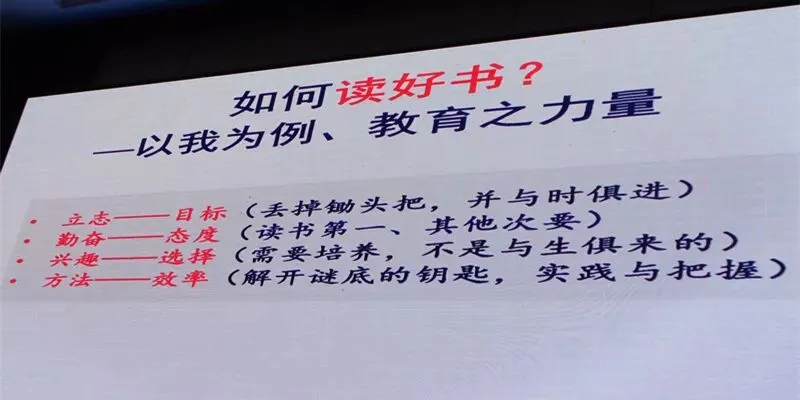 如何读好书？
—以我为例、教育之力量
• 立志——目标（丢掉锄头把，并与时俱进）
• 勤奋——态度（读书第一、其他次要）
• 兴趣——选择（需要培养，不是与生俱来的）
• 方法——效率（解开谜底的钥匙，实践与把握）